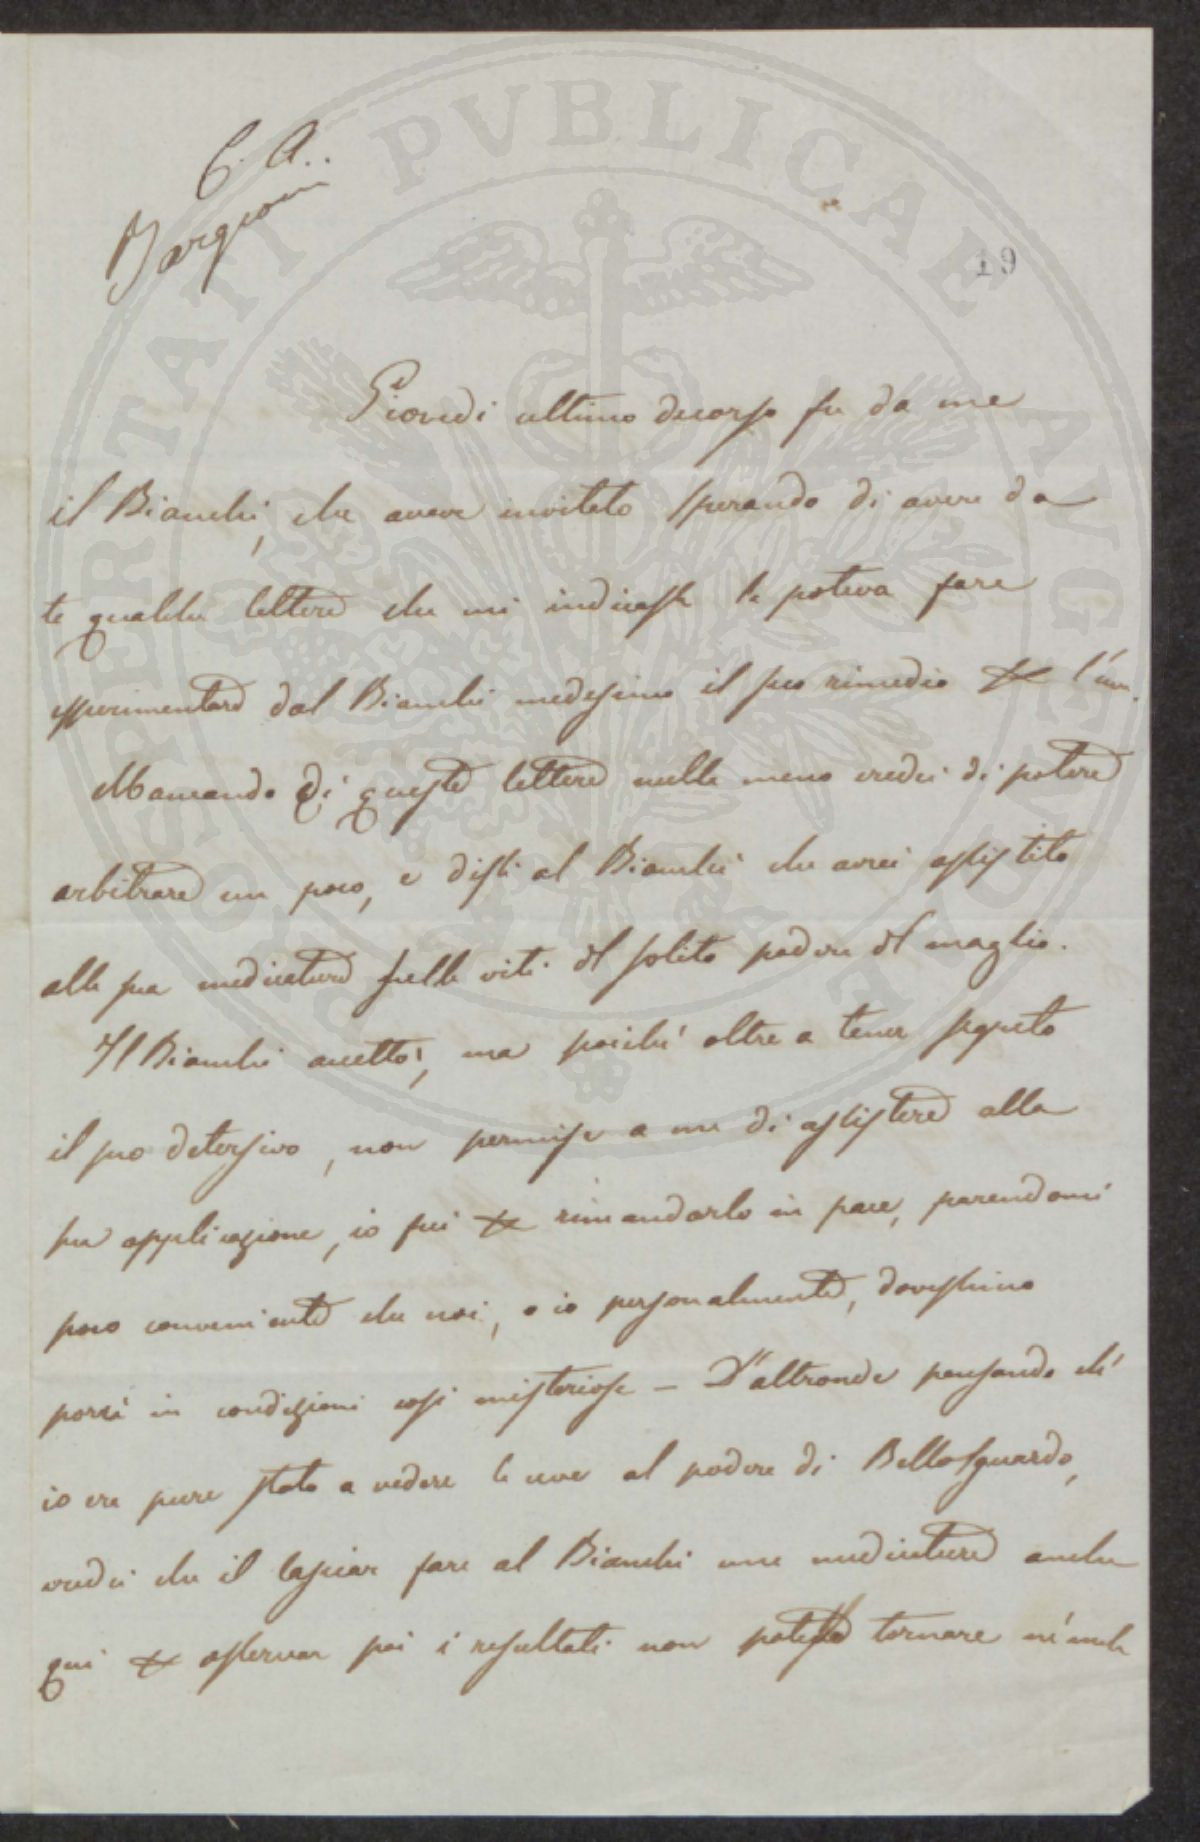 C. A.
Bargioni
19
Giovedi ultimo decorso fu da me
il Bianchi, che aveva invitato sperando di avere da
te qualche lettera che mi indicasse se poteva fare
esperimentare dal Bianchi medesimo il suo rimedio
Mancando di queste lettere nulla meno credei di potere
arbitrare un poco, e dissi al Bianchi che avrei assistito
alla sua medicatura sulle viti del solito podere del maglio.
Il Bianchi accettò, ma poiché oltre a tener segreto
il suo detersivo, non permise a me di assistere alla
sua applicazione, io fui per rimandarlo in pace, parendomi
poco conveniente che noi, o io personalmente, dovessimo
porci in condizioni così misteriose — D'altronde pensando ch'
io era pure stato a vedere le uve al podere di Bellosguardo,
credei che il lasciar fare al Bianchi una medicatura anche
qui per osservar poi i resultati non potesse tornare
PROSPERITATI PVBLICAE AVGENDAE